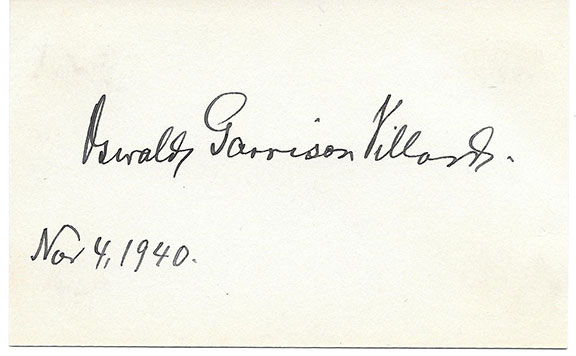 Oswald Garrison Villard.
Nov 4, 1940.